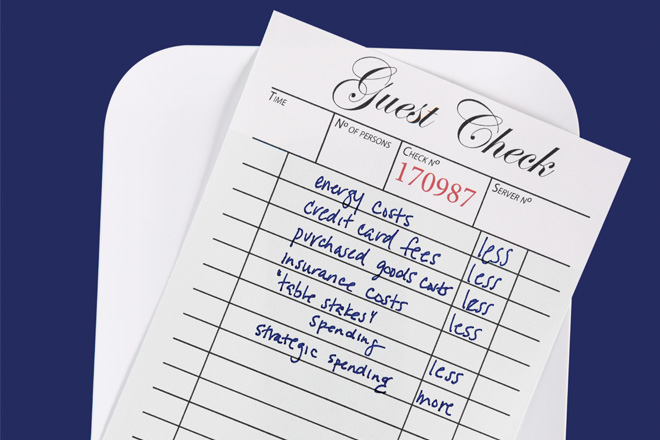 Guest Check
TIME
Nº OF PERSONS
CHECK Nº
170987
SERVER Nº
energy costs less
credit card fees less
purchased goods costs less
insurance costs less
"table stakes"
spending less
strategic spending more